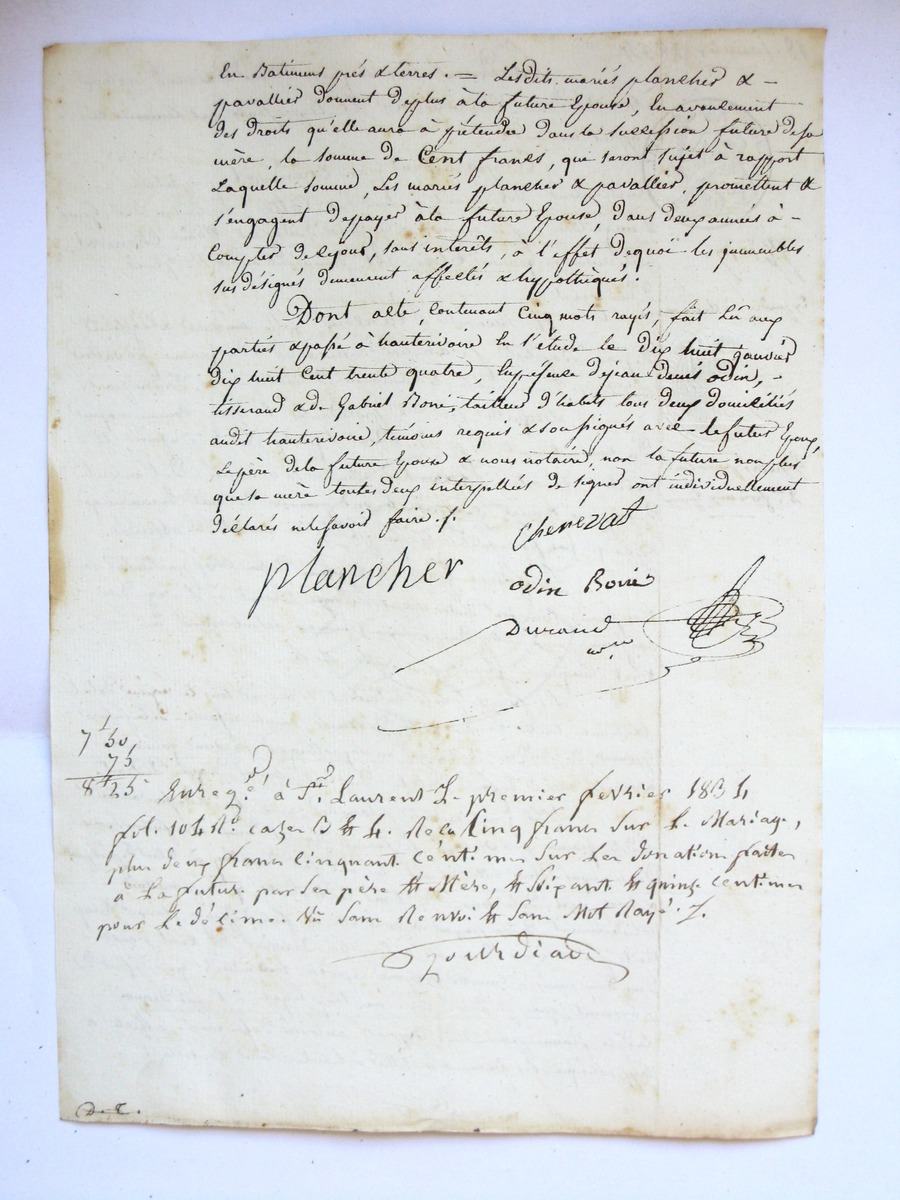 En Batimens prés & terres. = Les dits mariés plancher & -
pavallier donnent de plus à la future Epouse, En avancement
des droits qu'elle aura à prétendre dans la succession future de sa
mère, la somme de Cent francs, qui seront sujet à rapport
Laquelle somme, Les mariés plancher & pavallier, promettent &
s'engagent de payer à la future Epouse, dans deux années à -
Compter de ce jour, sans intérêts, à l'effet de quoi les immeubles
sus désignés demeurent affectés & hypothéqués.
Dont acte, contenant cinq mots rayés, fait Lû aux
parties & passé à hauterivoire En l'étude le dix huit janvier
dix huit Cent trente quatre, En présence de jean denis odin, -
tisserand & de Gabriel Borie, tailleur d'habits tous deux domiciliés
audit hauterivoire, témoins requis & soussignés avec le futur Epoux,
Le père de la future Epouse & nous notaire, non la future non plus
que sa mère toutes deux interpellées de signer ont individuellement
déclarés ne le savoir faire. /.
Chenevat
plancher
odin Borie
Durand
nre
7f 50
75
8f 25
Enregé. à St. Laurent Le premier février 1834
fol. 104 Ro. cases 3 et 4. Reçu Cinq francs sur Le Mariage,
plus deux francs cinquante centimes sur les donations faites
à La future par ses père et Mère, et soixante et quinze centimes
pour Le décime. Vu sans Renvoi et sans Mot Rayé. /.
D. E.